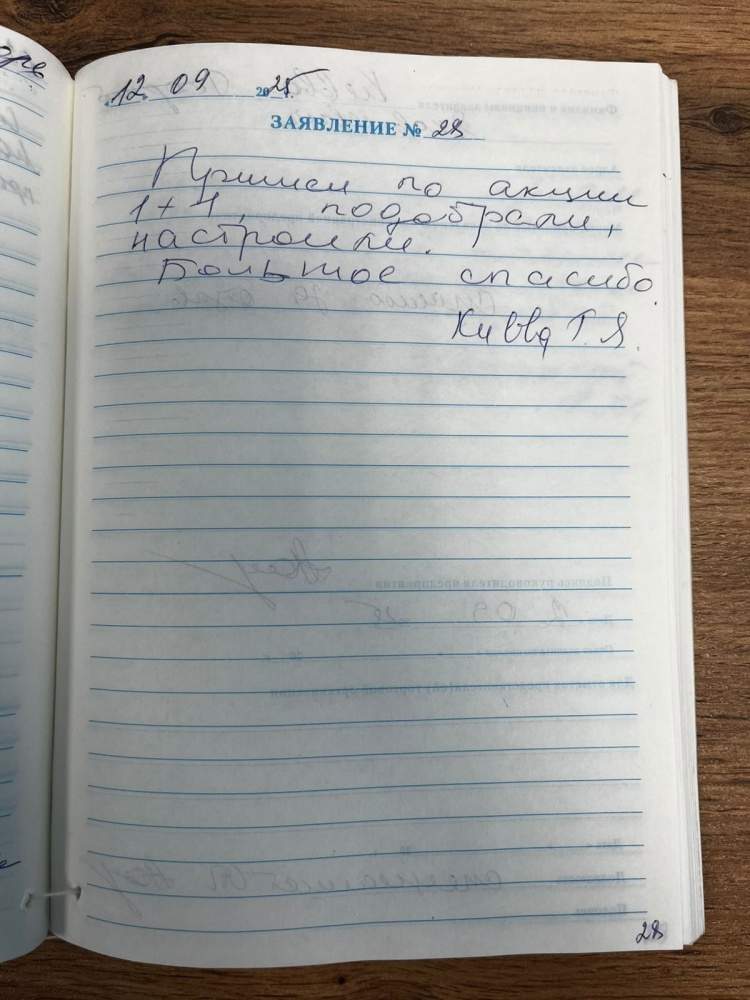 12. 09 2025г.
ЗАЯВЛЕНИЕ № 28
Пришли по акции
1+1, подобрали,
настроили.
Большое спасибо.
Кивва Г. Я.
28